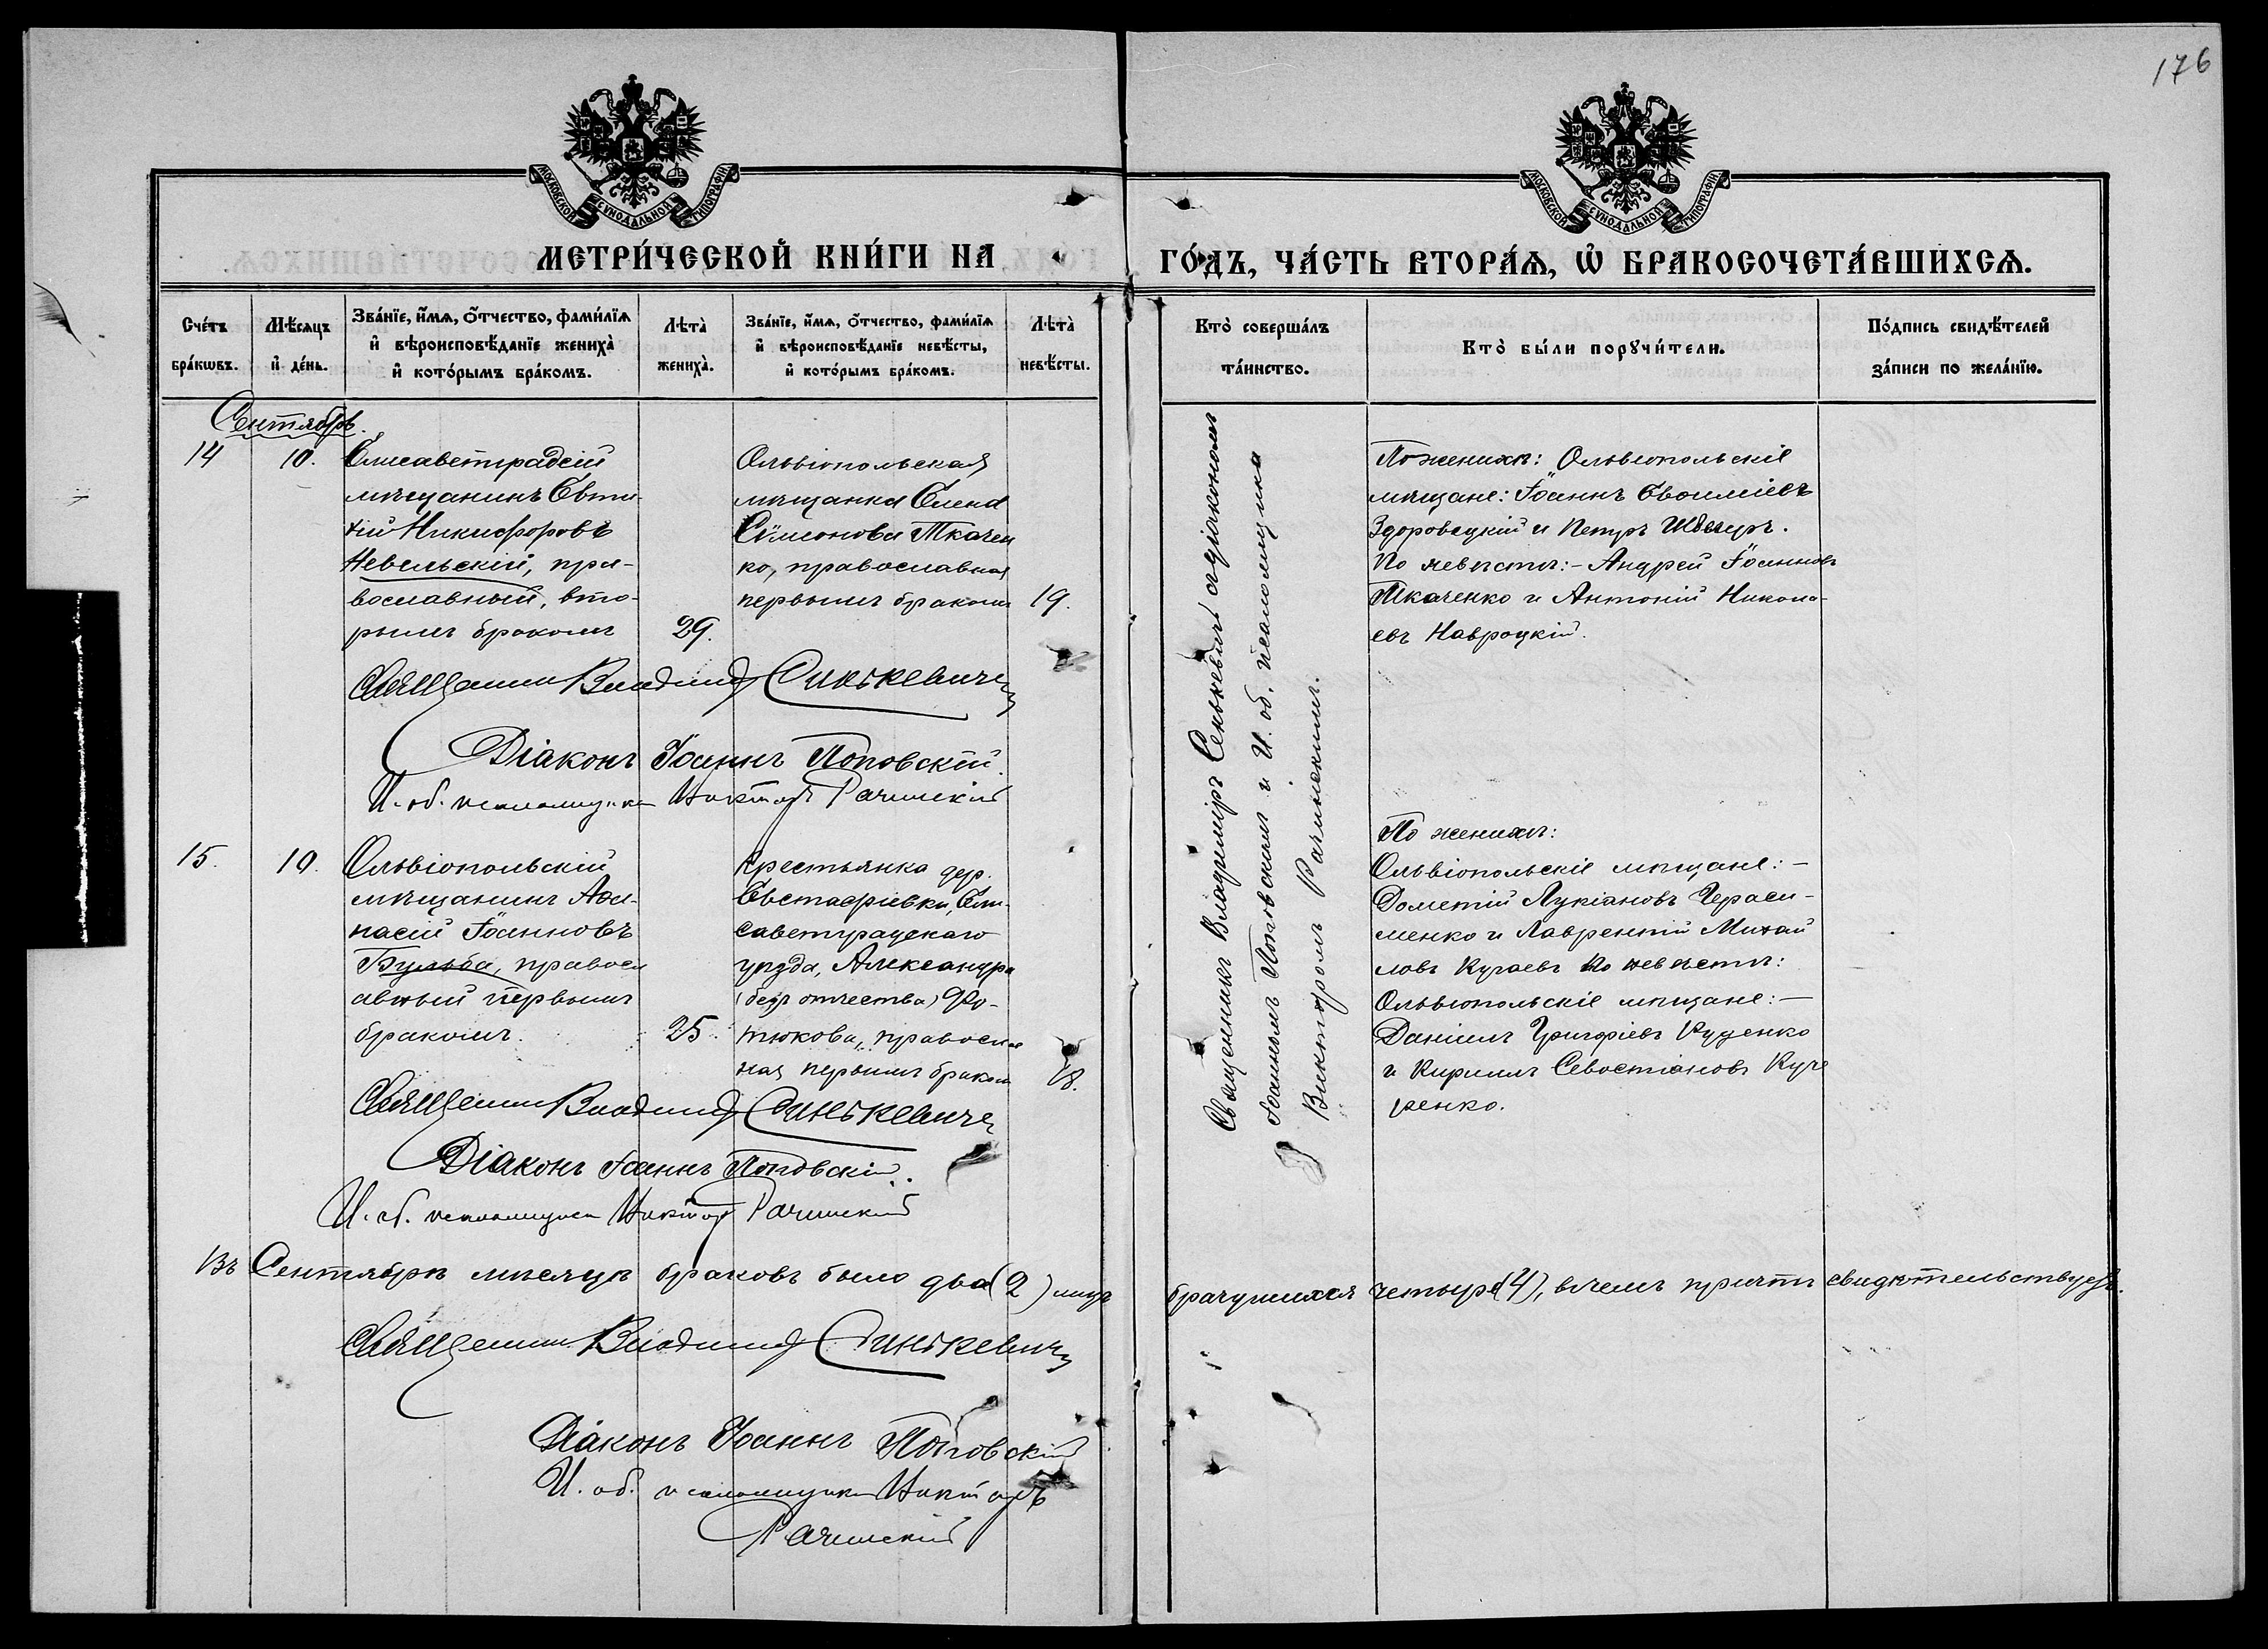 176
МОСКОВСКОЙ СѴНОДАЛЬНОЙ ТИПОГРАФІИ
МОСКОВСКОЙ СѴНОДАЛЬНОЙ ТИПОГРАФІИ
МЕТРИ́ЧЕСКОЙ КНИ́ГИ НА ГО́ДЪ, ЧА́СТЬ ВТОРА́Ѧ, Ѡ҆ БРАКОСОЧЕТА́ВШИХСѦ.
Сче́тъ бра́кѡвъ.
Мѣ́сѧцъ и҆ де́нь.
Зва́нїе, и҆́мѧ, ѻ҆́тчество, фами́лїѧ
и҆ вѣроисповѣ́данїе жениха̀
и҆ кото́рымъ бра́комъ.
Лѣта̀ жениха̀.
Зва́нїе, и҆́мѧ, ѻ҆́тчество, фами́лїѧ
и҆ вѣроисповѣ́данїе невѣ́сты,
и҆ кото́рымъ бра́комъ.
Лѣта̀ невѣ́сты.
Кто̀ соверша́лъ та́инство.
Кто̀ бы́ли порꙋчи́тели.
По́дпись свидѣ́телей за́писи по жела́нїю.
Сентябрь.
14
10.
Елисаветградскій
мѣщанинъ Евти-
хій Никифоровъ
Невельскій, пра-
вославный, вто-
рымъ бракомъ
29.
Ольвіопольская
мѣщанка Елена
Сѵмеонова Ткачен
ко, православная
первымъ бракомъ
19.
Священникъ Владиміръ Сенькевичъ съ діакономъ
Іоанномъ Поповскимъ и И. об. псаломщика
Викторомъ Рачинскимъ.
По женихѣ: Ольвіопольскіе
мѣщане: Іоаннъ Евѳиміевъ
Здоровецкій и Петръ Швецъ.
По невѣстѣ:- Андрей Іоанновъ
Ткаченко и Антоній Никола-
евъ Навроцкій.
Священникъ Владиміръ Синькевичъ
Діаконъ Іоаннъ Поповскій.
И. об. псаломщика Викторъ Рачинскій
15.
10.
Ольвіопольскій
мѣщанинъ Аѳа-
насій Іоанновъ
Бульба, правосл
авный первымъ
бракомъ.
25.
Крестьянка дер.
Евстафіевки, Ели-
саветградскаго
уѣзда, Александра
(безъ отчества) Фо-
тюкова, правосла
ная первымъ бракомъ
18.
По женихѣ:
Ольвіопольскіе мѣщане:-
Дометій Лукіановъ Гераси-
менко и Лаврентій Михаи
ловъ Кугаевъ По невѣстѣ:
Ольвіопольскіе мѣщане:-
Даніилъ Григоріевъ Куценко
и Кириллъ Севостіановъ Куче
ренко.
Священникъ Владиміръ Синькевичъ
Діаконъ Іоаннъ Поповскій.
И. об. псаломщика Викторъ Рачинскій
Въ Сентябрѣ мѣсяцѣ браковъ было два (2) лицъ брачущихся четыре (4), въ чемъ причтъ свидѣтельствуетъ.
Священникъ Владиміръ Синькевичъ
Діаконъ Іоаннъ Поповскій
И. об. псаломщика Викторъ
Рачинскій